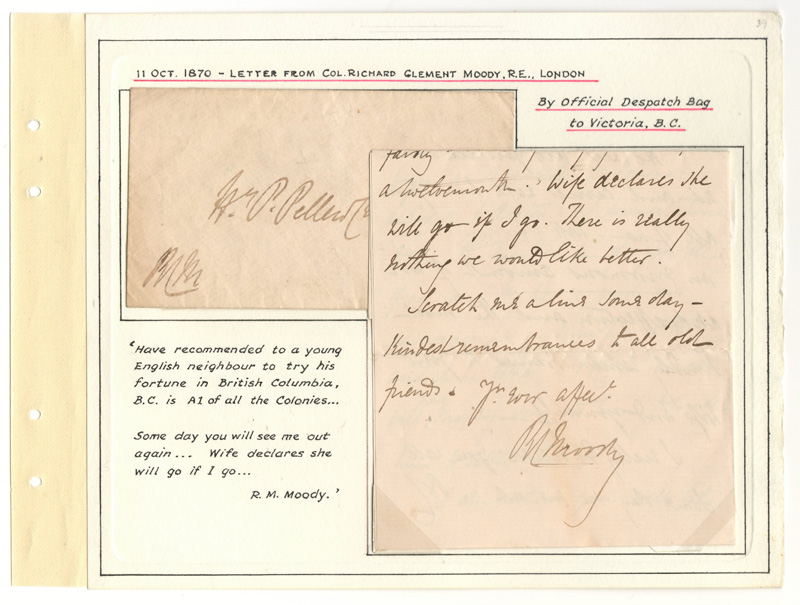 39
11 OCT. 1870 – LETTER FROM COL. RICHARD CLEMENT MOODY, R.E., LONDON
By Official Despatch Bag
to Victoria, B.C.
Hy. P. Pellew
RCM
a twelvemonth. Wife declares she
will go if I go. There is really
nothing we would like better.
Scratch me a line some day –
Kindest remembrances to all old
friends. Yrs ever affect.
RCMoody
'Have recommended to a young
English neighbour to try his
fortune in British Columbia,
B.C. is A1 of all the Colonies...
Some day you will see me out
again... Wife declares she
will go if I go...
R. M. Moody.'